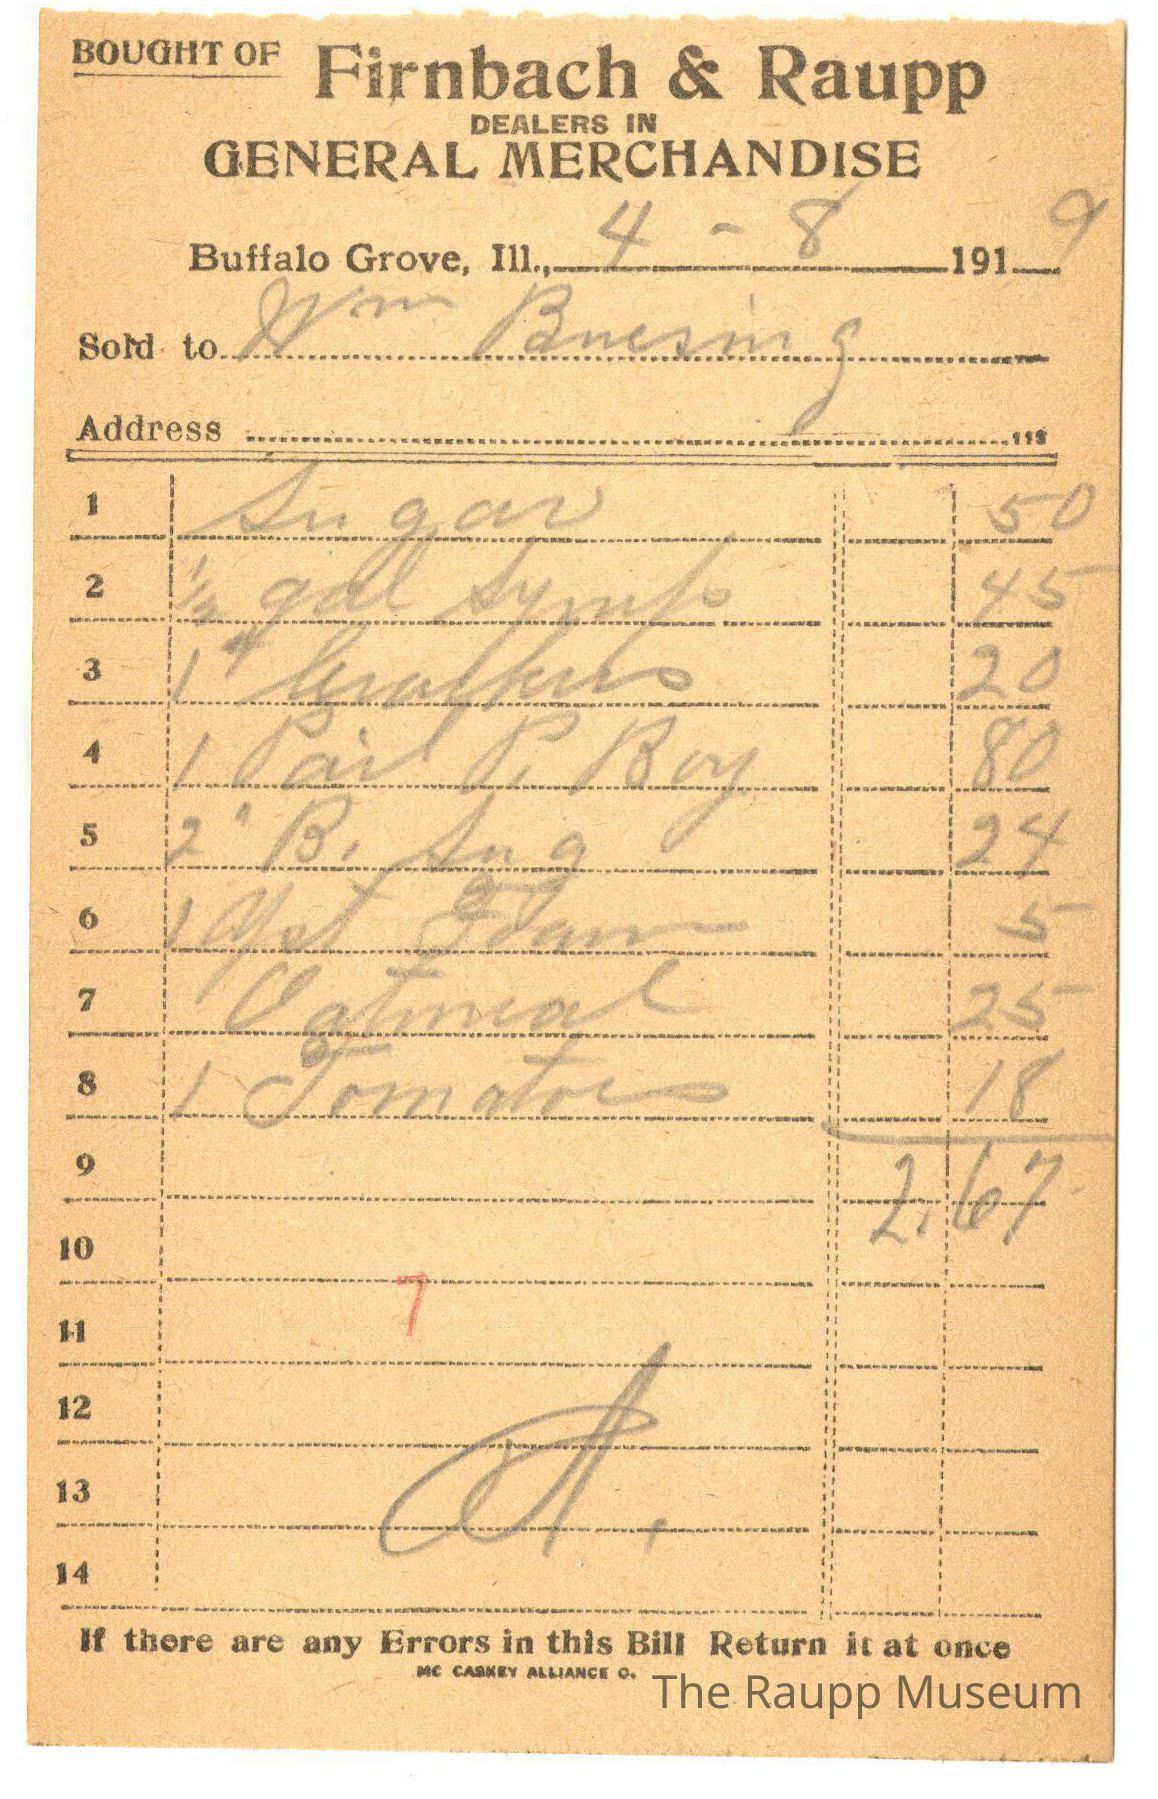 BOUGHT OF Firnbach & Raupp
DEALERS IN
GENERAL MERCHANDISE
Buffalo Grove, Ill., 4 - 8 1919
Sold to Wm Buesing
Address
1 Sugar 50
2 ½ gal Syrup 45
3 1 # Crackers 20
4 1 Pail P. Boy 80
5 2 " B. Sug 24
6 1 Yst Foam 5
7 Oatmeal 25
8 1 Tomatoes 18
9 2.67
10
7
11
12
A.
13
14
If there are any Errors in this Bill Return it at once
MC CASKEY ALLIANCE O.
The Raupp Museum